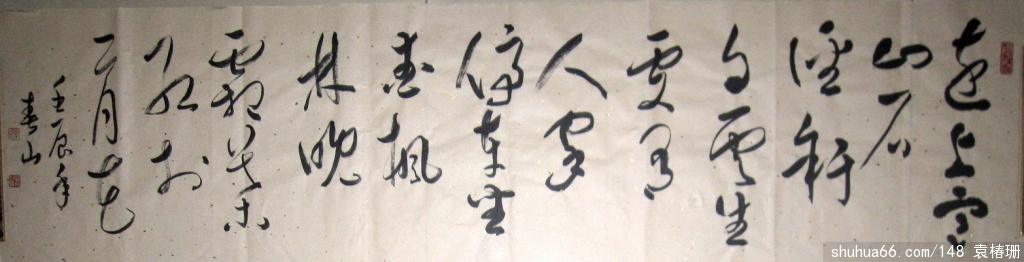 远上寒
山石
径斜
白云生
处有
人家
停车坐
爱枫
林晚
霜叶
红於
二月花
壬辰年
春山
shuhua66.com/148 袁椿珊